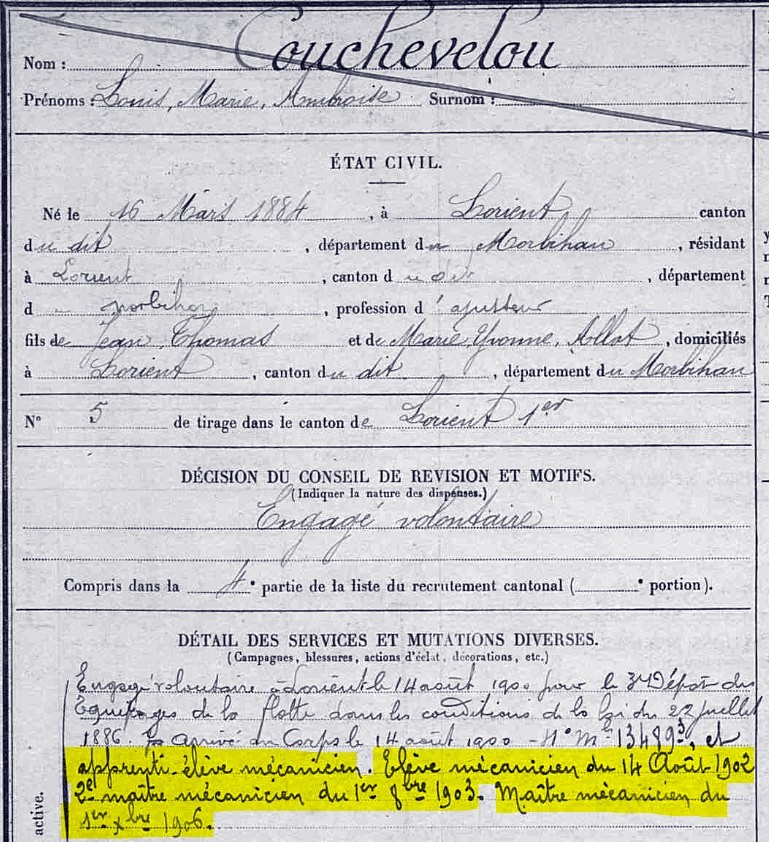 Nom : Couchevelou
Prénoms : Louis, Marie, Ambroise Surnom :
ÉTAT CIVIL.
Né le 16 Mars 1884, à Lorient canton
du dit, département du Morbihan, résidant
à Lorient, canton du dit, département
d Morbihan, profession d'ajusteur
fils de Jean Thomas et de Marie Yvonne, Allot, domiciliés
à Lorient, canton du dit, département du Morbihan
N° 5 de tirage dans le canton de Lorient 1er
DÉCISION DU CONSEIL DE REVISION ET MOTIFS.
(Indiquer la nature des dispenses.)
Engagé volontaire
Compris dans la 4e partie de la liste du recrutement cantonal ( e portion).
DÉTAIL DES SERVICES ET MUTATIONS DIVERSES.
(Campagnes, blessures, actions d'éclat, décorations, etc.)
Engagé volontaire à Lorient le 14 août 1900 pour le 3e Dépôt des
Equipages de la flotte dans les conditions de la loi du 22 juillet
1886. arrivé au Corps le 14 août 1900 N° Mle 13489 3, et
apprenti-élève mécanicien. Elève mécanicien du 14 Août 1902
2e maître mécanicien du 1er 8bre 1903. Maître mécanicien du
1er Xbre 1906.
active.